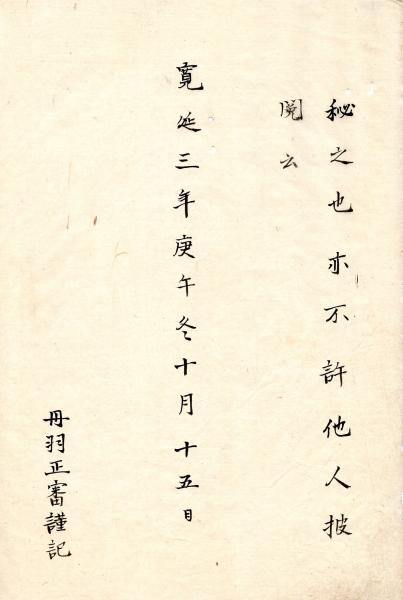 秘之也亦不許他人披
閲云
寛延三年庚午冬十月十五日
丹羽正審謹記